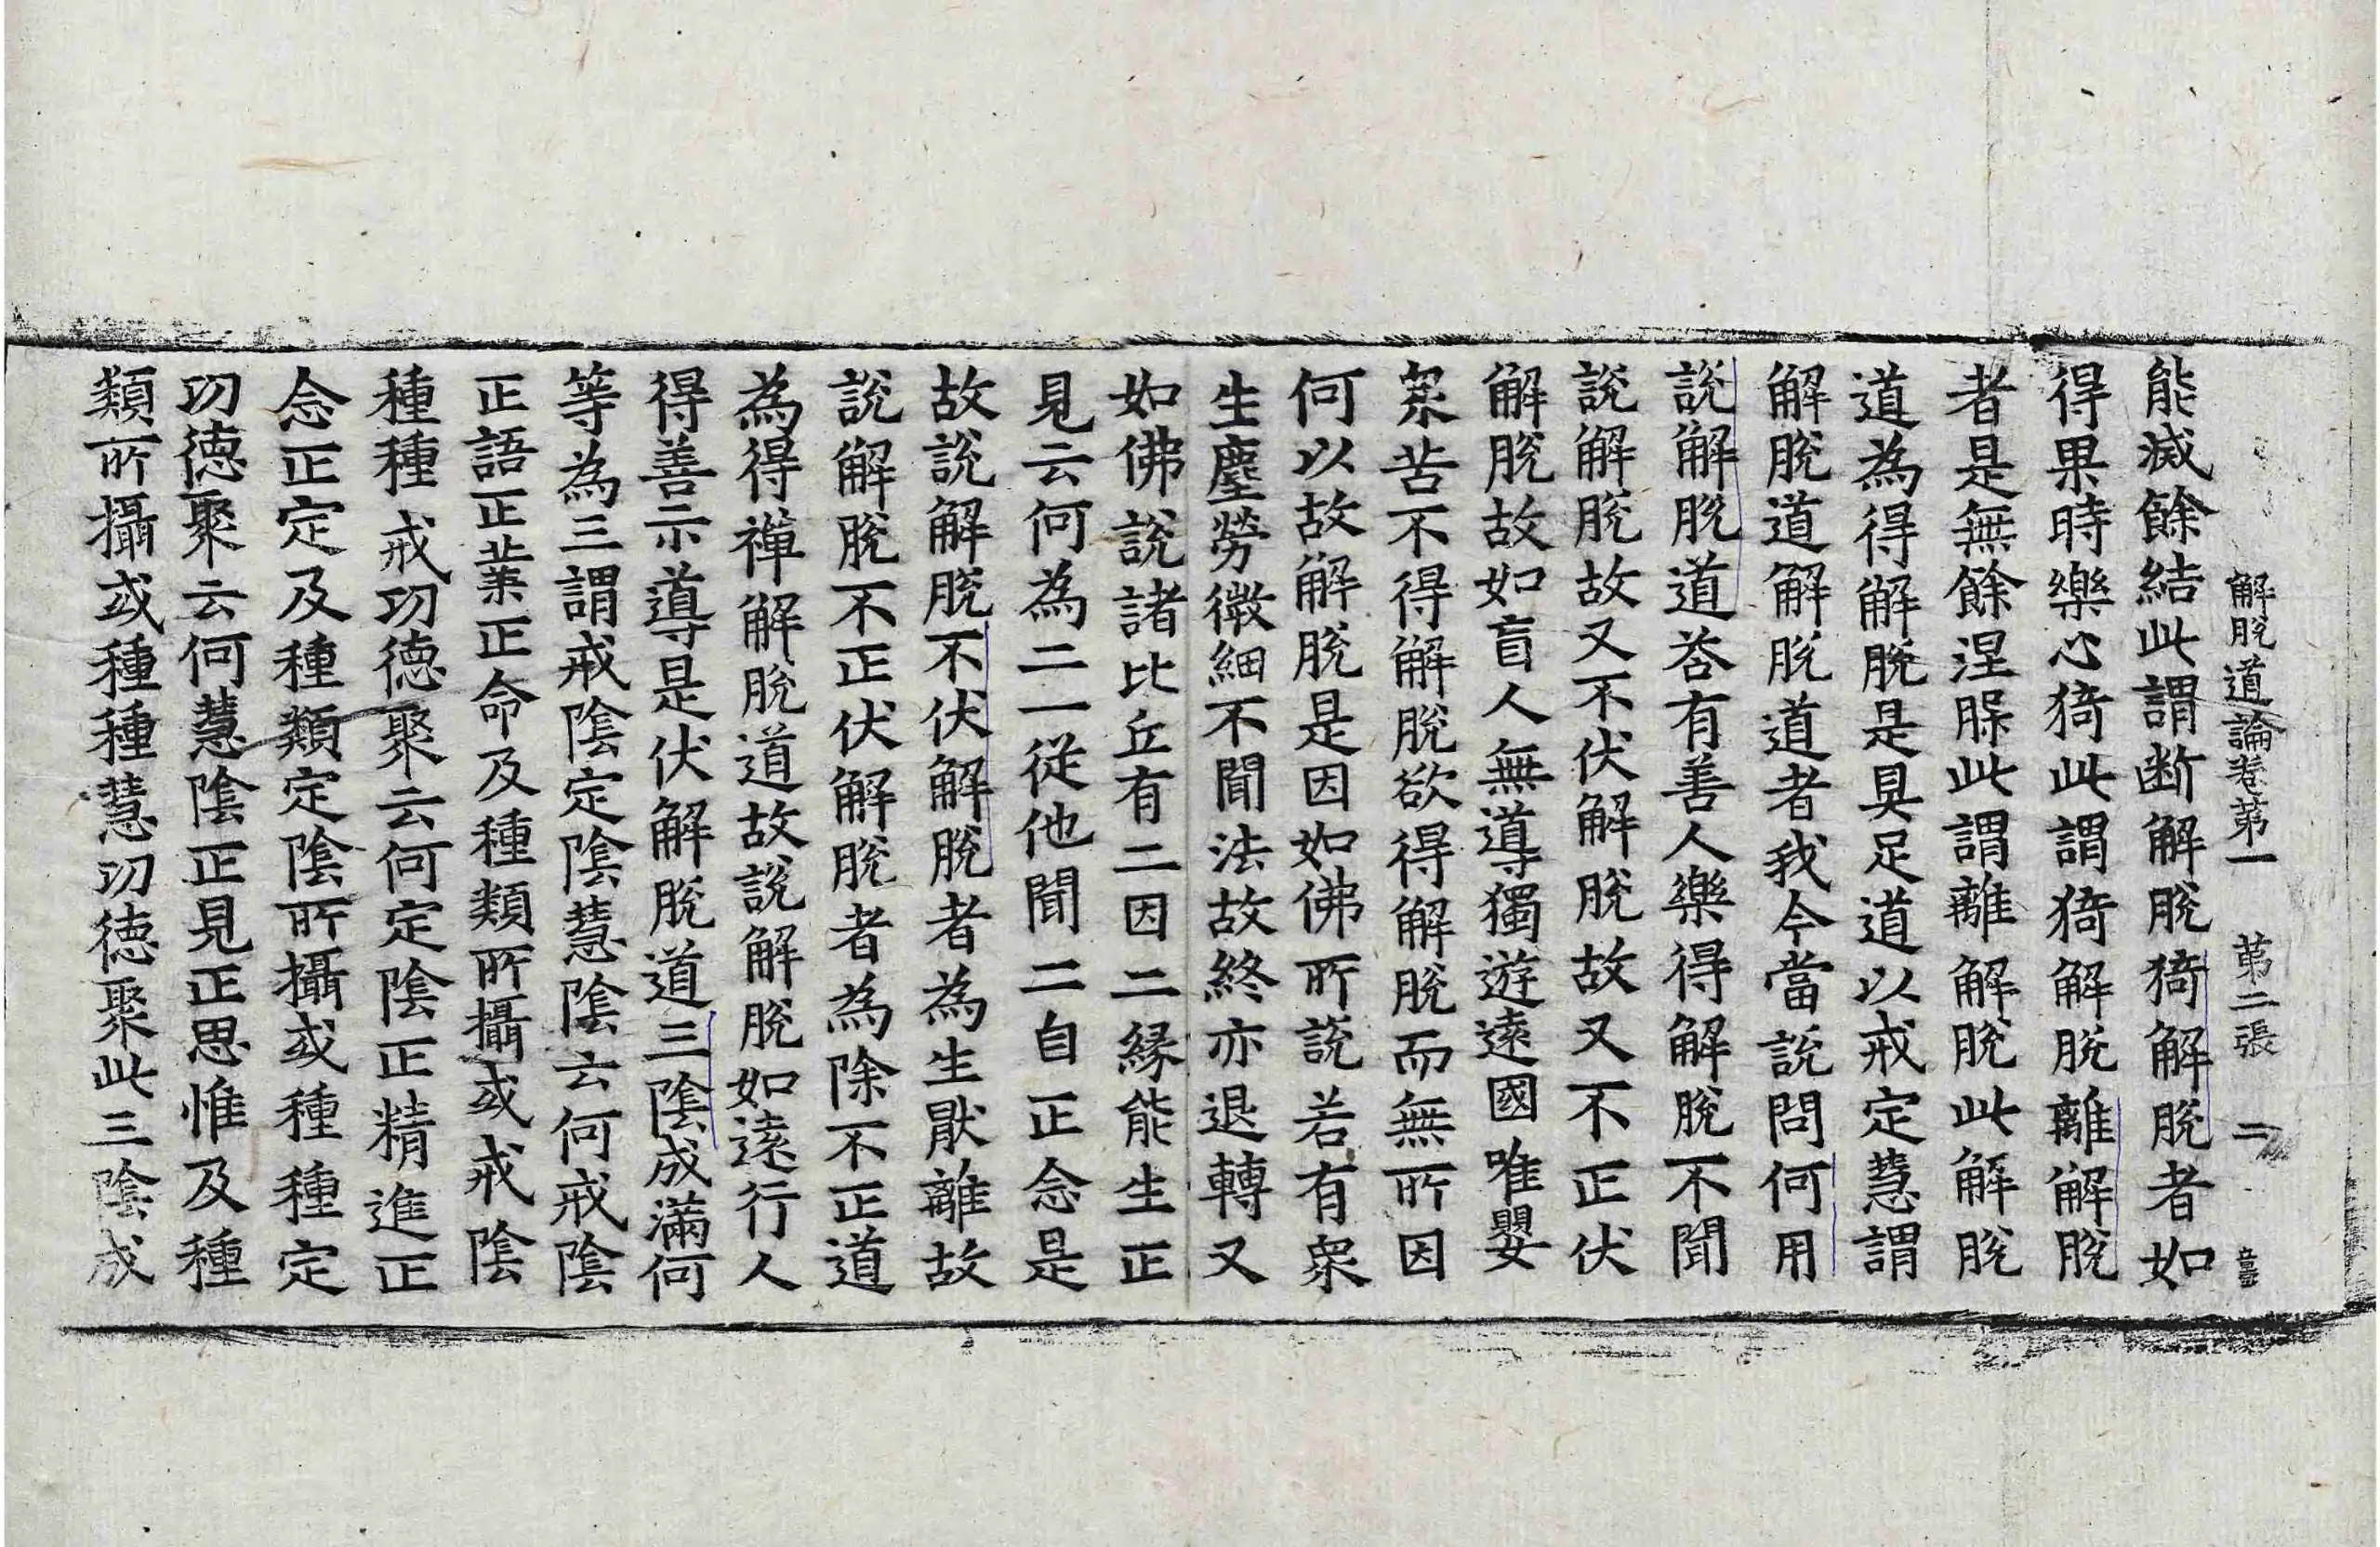 解脫道論卷第一 第二張 二
能滅餘結此謂断解脫猗解脫者如
得果時樂心猗此謂猗解脫離解脫
者是無餘涅槃此謂離解脫此解脫
道為得解脫是具足道以戒定慧謂
解脫道解脫道者我今當說問何用
說解脫道荅有善人樂得解脫不聞
說解脫故又不伏解脫故又不正伏
解脫故如盲人無導獨遊遠國唯嬰
衆苦不得解脫欲得解脫而無所因
何以故解脫是因如佛所說若有衆
生塵勞微細不聞法故終亦退轉又
如佛說諸比丘有二因二緣能生正
見云何為二一從他聞二自正念是
故說解脫不伏解脫者為生猒離故
說解脫不正伏解脫者為除不正道
為得禪解脫道故說解脫如遠行人
得善示導是伏解脫道三陰成滿何
等為三謂戒陰定陰慧陰云何戒陰
正語正業正命及種類所攝或戒陰
種種戒功德聚云何定陰正精進正
念正定及種類定陰所攝或種種定
功德聚云何慧陰正見正思惟及種
類所攝或種種慧功德聚此三陰成